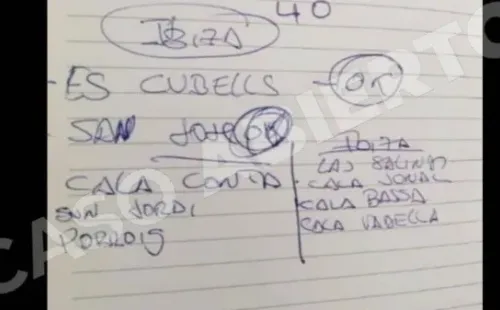 40
IBIZA
- ES CUBELLS - OK
- SAN JOSE OK
CALA CONTA
SAN JORDI
PORROIG
IBIZA
LAS SALINAS
- CALA JONDAL
CALA BASSA
CALA VADELLA
CASO ABIERTO